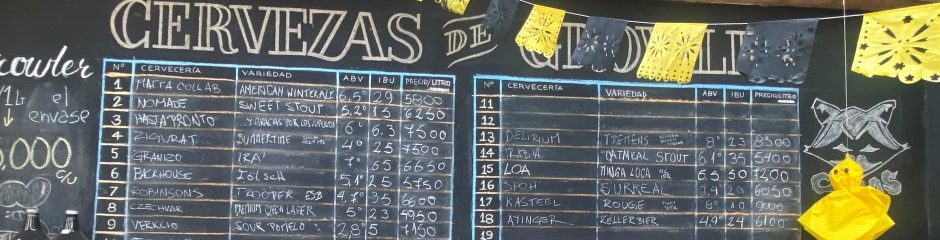 CERVEZAS DE
rowler
1L el
envase
5.000
c/u
Nº CERVECERÍA VARIEDAD ABV IBU PRECIO/LITRO
1 MATTA COLLAB AMERICAN WINTERALE 6,5° 29 5800
2 NOMADE SWEET STOUT 5.2° 15 6250
3 HASTA PRONTO ...Y GRACIAS POR LOS 6° 6.3 7500
4 ZIGURAT SUMMERTIME 4° 25 7500
5 GRANIZO IRA' 7° 65 6650
6 BACKHOUSE KOLSCH 5,1° 25 5750
7 ROBINSONS TROOPER ESB 4.7° 35 6600
8 CZECHVAR PREMIUM CZECH LAGER 5° 23 5950
9 VERKCIO SOUR POMELO 2,8° 5 7150
Nº CERVECERÍA VARIEDAD ABV IBU PRECIO/LITRO
11
12
13 DELIRIUM TREMENS 8° 23 8300
14 OATMEAL STOUT 6.1° 35 5400
15 LOA MINGA LOCA 6.5 50 7200
16 SPOH SURREAL 3.4° 20 6050
17 KASTEEL ROUGE 8° 10 9000
18 AYINGER KELLERBIER 4,9° 24 6100
19